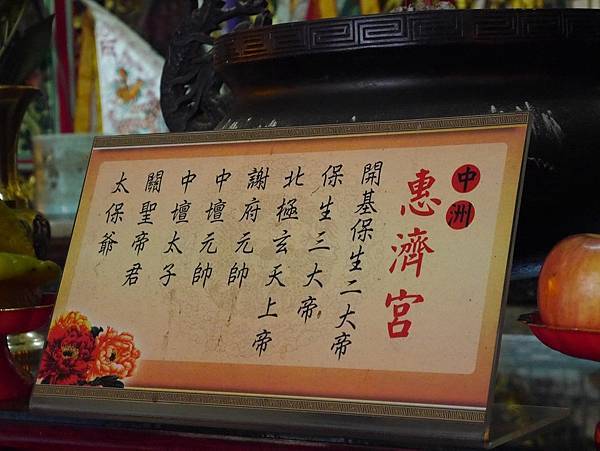 中洲
惠濟宮
開基保生二大帝
保生三大帝
北極玄天上帝
謝府元帥
中壇元帥
中壇太子
關聖帝君
太保爺